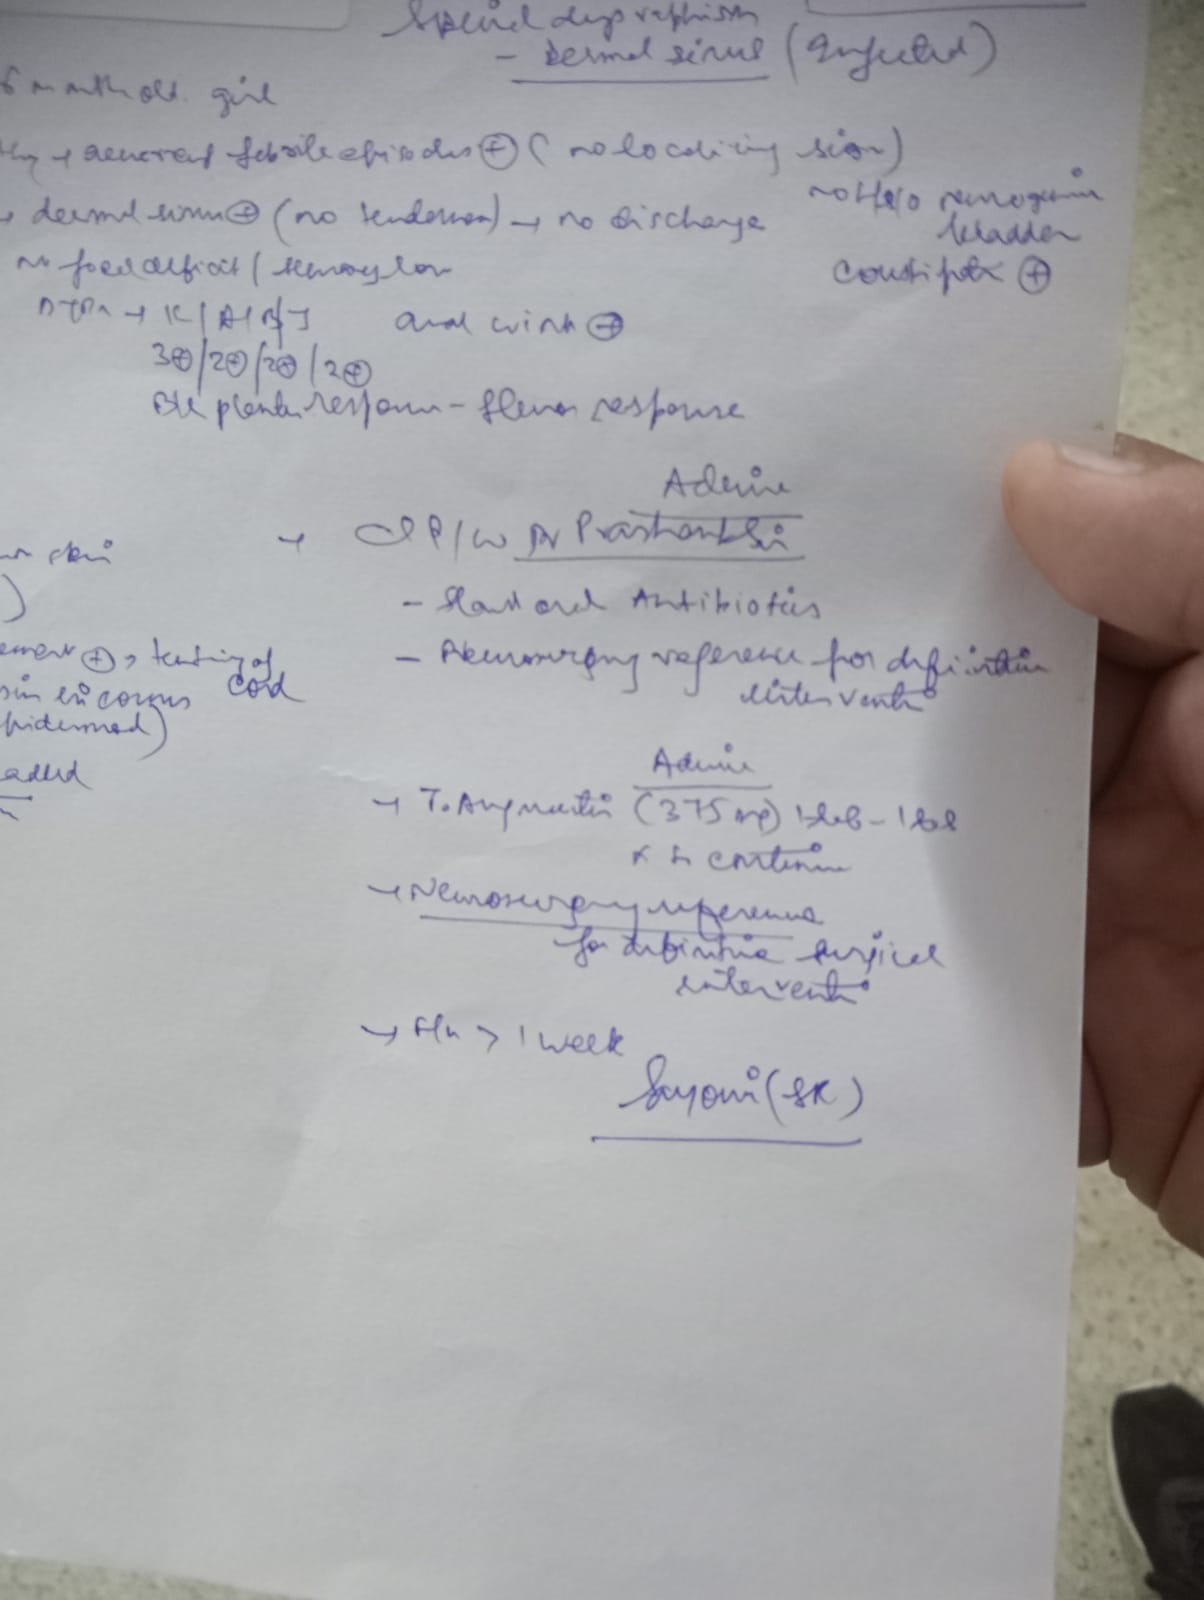 Spinal dysraphism
- Dermal sinus (Infected)
6 month old girl
H/o → recurrent febrile episodes ⊕ (no localizing sign)
→ dermal sinus ⊕ (no tenderness) → no discharge
no H/o neurogenic bladder
no focal deficit / sensory loss
constipatn ⊕
DTRs → K/A/B/T
anal wink ⊕
3⊕/2⊕/2⊕/2⊕
B/L plantar response - flexor response
Advice
skin
)
→ D/W Dr Prashant Sir
- Start oral Antibiotics
ement ⊕, tenting of cord
- Neurosurgery reference for definitive interventn
conus
epidermoid)
Advice
→ T. Augmentin (375 mg) 1tab - 1tab
x to continue
→ Neurosurgery reference
for definitive surgical
interventn
→ F/u > 1 week
Sayoni (SR)